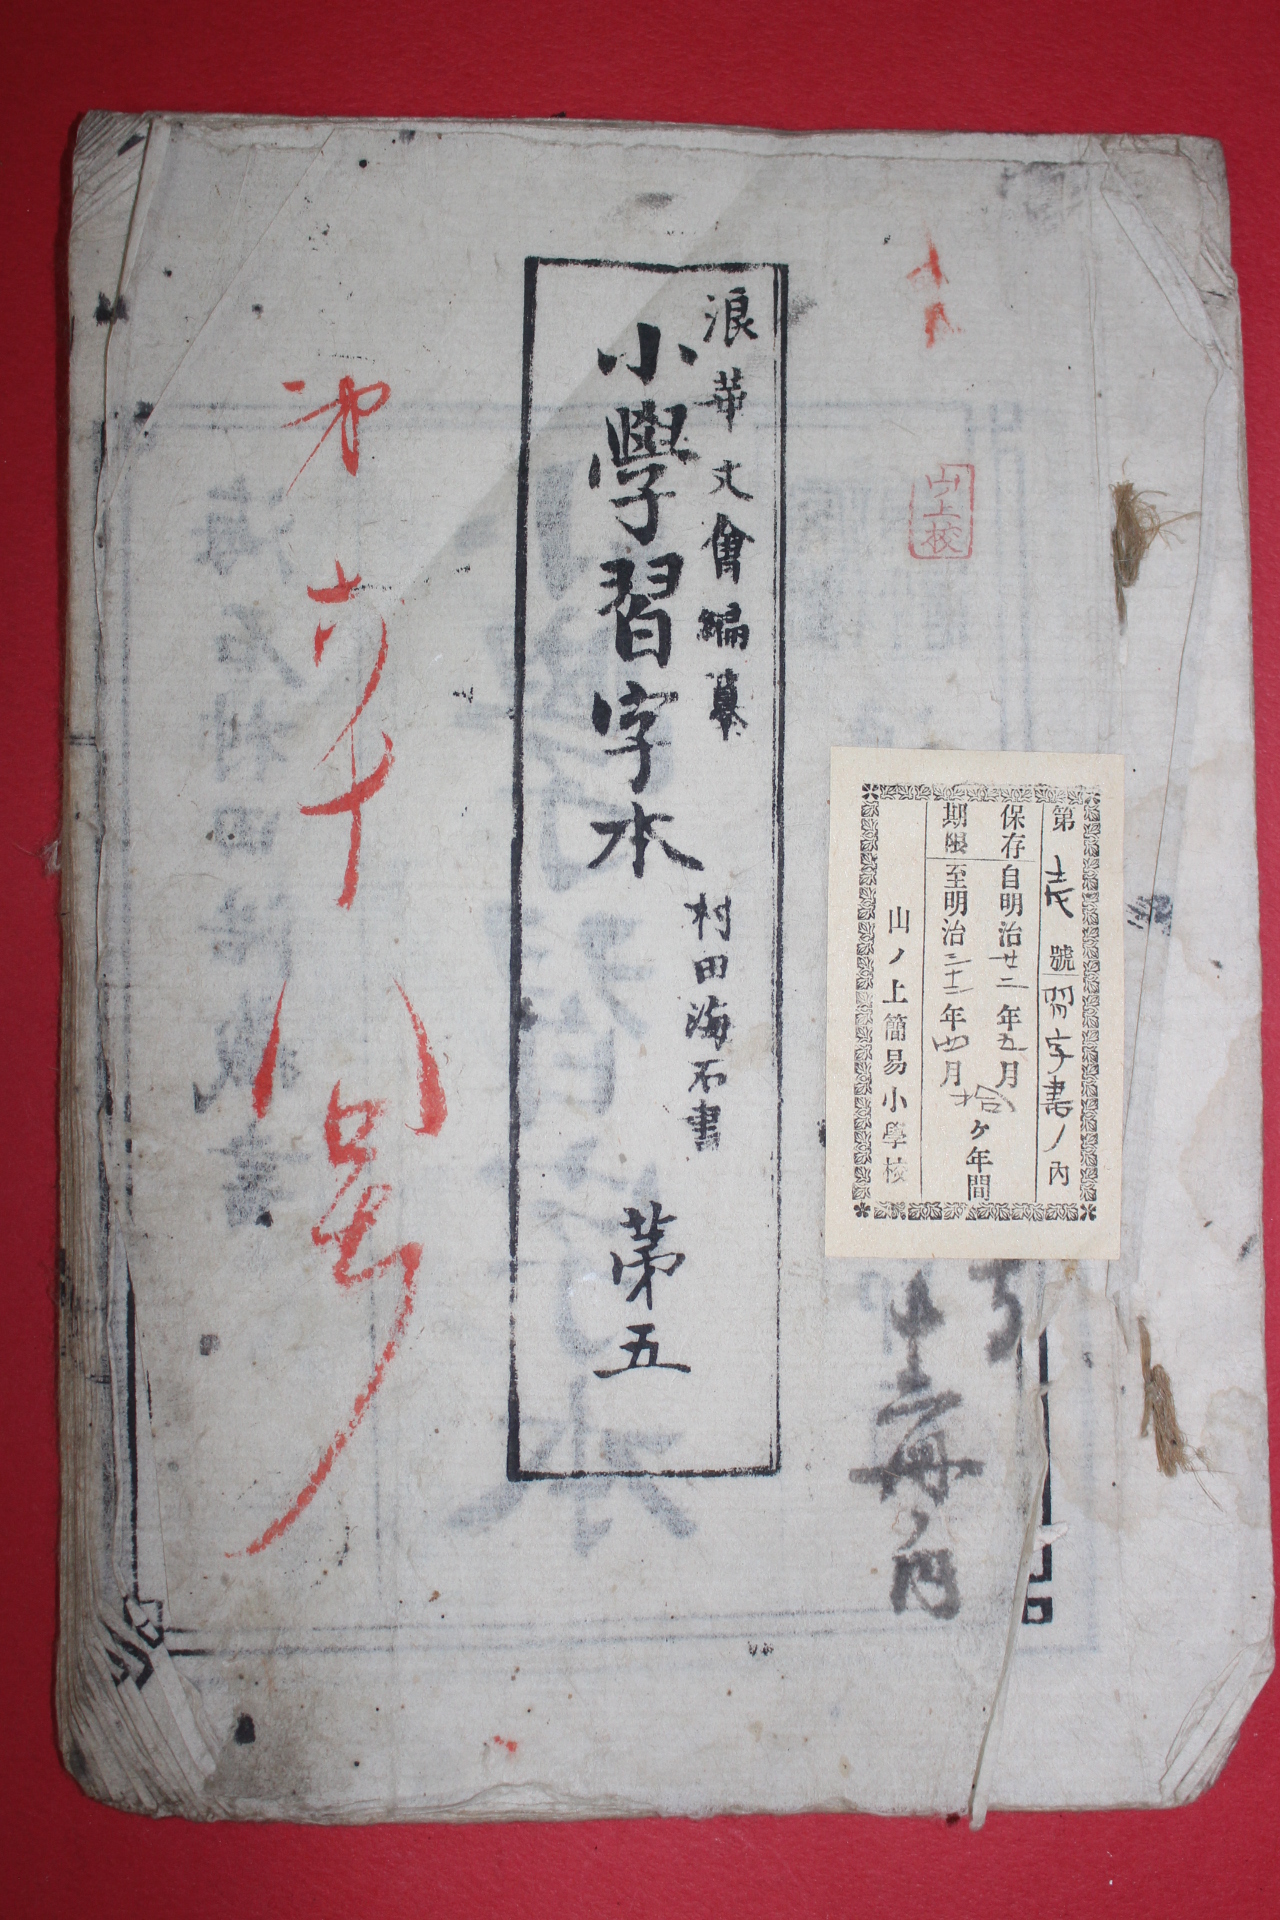 山ノ上校
第 壱 號 習字書ノ内
保存
期限
自明治廿二年五月
至明治三十二年四月
拾ヶ年間
山ノ上簡易小學校
号
十三冊ノ内
浪華文會編纂
小學習字本 第五
村田海石書
第六十八号